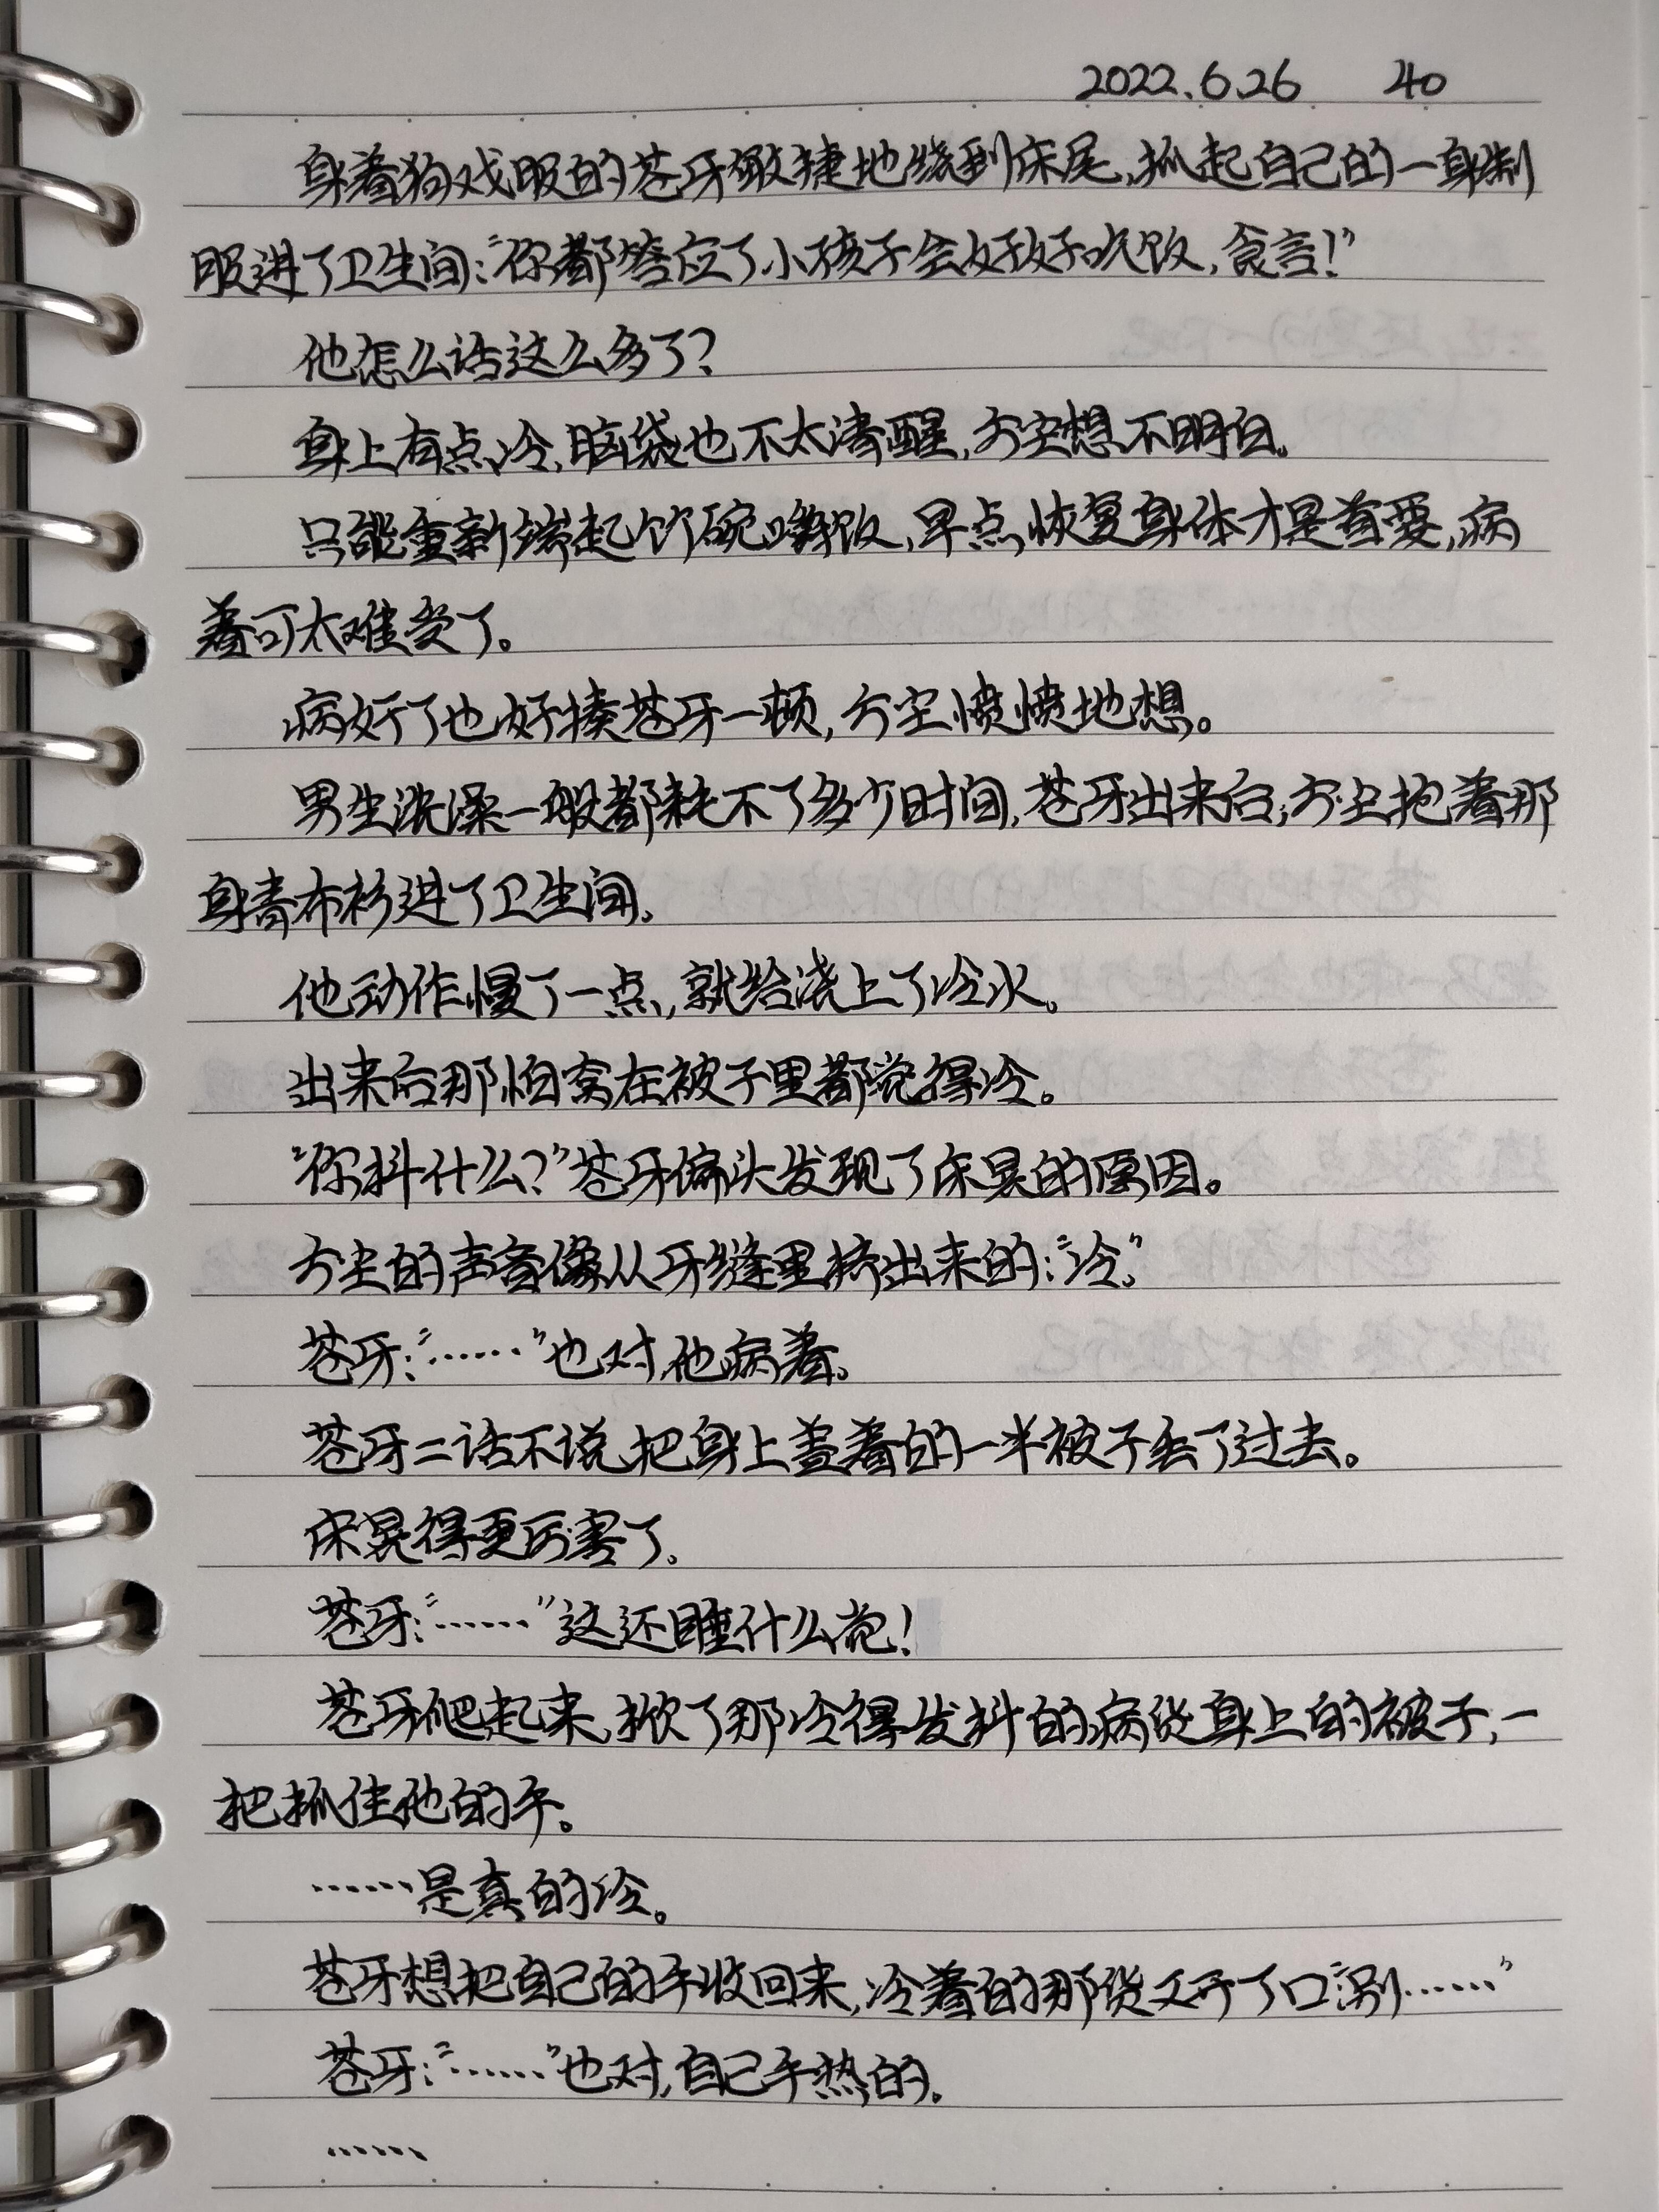 2022.6.26 40
身着狗戏服的苍牙敏捷地绕到床尾,抓起自己的一身制
服进了卫生间:“你都答应了小孩子会好好吃饭,食言!”
他怎么话这么多了?
身上有点冷,脑袋也不太清醒,方尘想不明白。
只能重新端起竹碗嚼饭,早点恢复身体才是首要,病
着可太难受了。
病好了也好揍苍牙一顿,方尘愤愤地想。
男生洗澡一般都耗不了多少时间,苍牙出来后,方尘抱着那
身青布衫进了卫生间。
他动作慢了一点,就给浇上了冷水。
出来后那怕窝在被子里都觉得冷。
“你抖什么?”苍牙偏头发现了床晃的原因。
方尘的声音像从牙缝里挤出来的:“冷。”
苍牙:“……”也对,他病着。
苍牙二话不说,把身上盖着的一半被子丢了过去。
床晃得更厉害了。
苍牙:“……”这还睡什么觉!
苍牙爬起来,掀了那冷得发抖的病货身上的被子,一
把抓住他的手。
……是真的冷。
苍牙想把自己的手收回来,冷着的那货又开了口“别……”
苍牙:“……”也对,自己手热的。
……